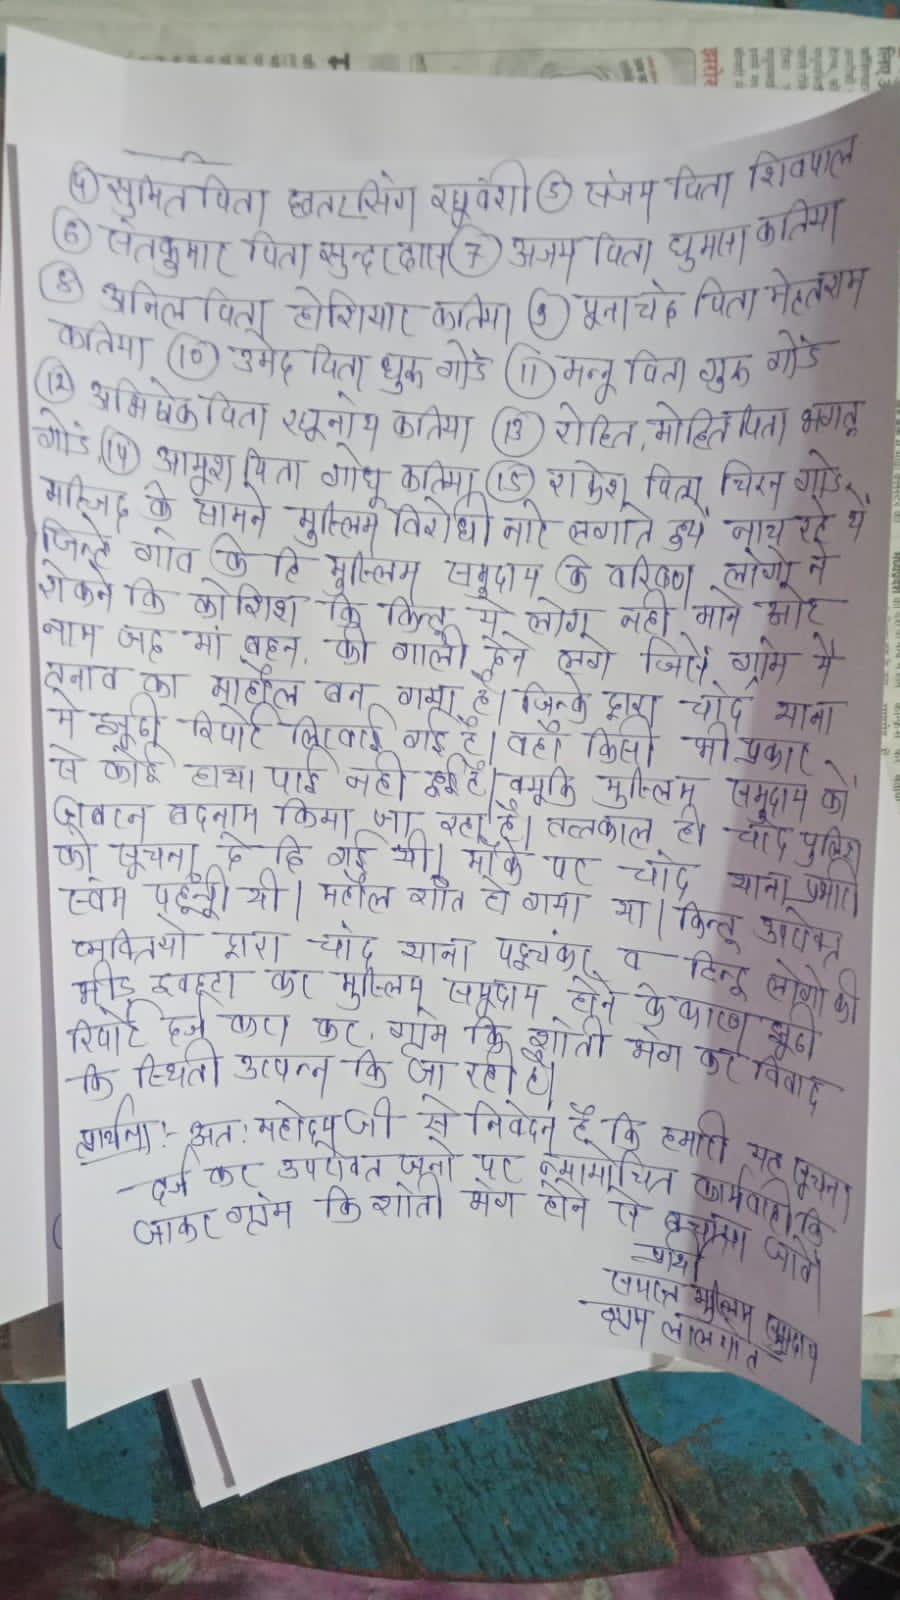 ④ सुमित पिता छतरसिंग रघूवंशी ⑤ संजय पिता शिवपाल
⑥ संतकुमार पिता सुन्दरदास ⑦ अजय पिता घुमता कतिया
⑧ अनिल पिता होशियार कतिया ⑨ पूनाचंद पिता मेहतराम
कतिया ⑩ उमेद पिता शुक गोंड ⑪ मन्नू पिता शुक गोंडे
⑫ अभिषेक पिता रघूनाथ कतिया ⑬ रोहित, मोहित पिता भगतू
गोंड, ⑭ आयुश पिता गोधू कतिया, ⑮ राकेश पिता चिरन गोंड,
मस्जिद के सामने मुस्लिम विरोधी नारे लगाते हुये नाच रहे थे
जिन्हे गांव के हि मुस्लिम समुदाय के वरिष्ठ लोगो ने
रोकने कि कोशिश कि किन्तु ये लोग नही माने ओर
नाम जद मां बहन, की गाली देने लगे जिसे ग्राम मै
तनाव का माहौल बन गया है। जिन्के द्वारा चांद थाना
मे झूठी रिपोर्ट लिखाई गई है। वहाँ किसी भी प्रकार
से कोई हाथा पाई नही हुई है। क्यूकि मुस्लिम समुदाय को
जबरन बदनाम किया जा रहा है। तत्काल ही चांद पुलिस
को सूचना दे दि गई थी। मौके पर चांद थाना प्रभारी
स्वंम पहूची थी। महौल शांत हो गया था। किन्तू उपरोक्त
व्यक्तियो द्वारा चांद थाना पहूचंकर व हिन्दू लोगो की
भीड़ इकट्टा कर मुस्लिम समूदाय होने के कारण झूठी
रिपोर्ट दर्ज करा कर, ग्राम कि शांती भंग कर विवाद
कि स्थिती उत्पन्न कि जा रही है।
प्रार्थना :- अत: महोदय जी से निवेदन है कि हमारी यह सूचना
दर्ज कर उपरोक्त जनो पर न्यायोचित कार्यवाही कि
जाकर ग्राम कि शांती भंग होने से बचाया जावे
प्रार्थी
समस्त मुस्लिम समुदाय
ग्राम लालगांव